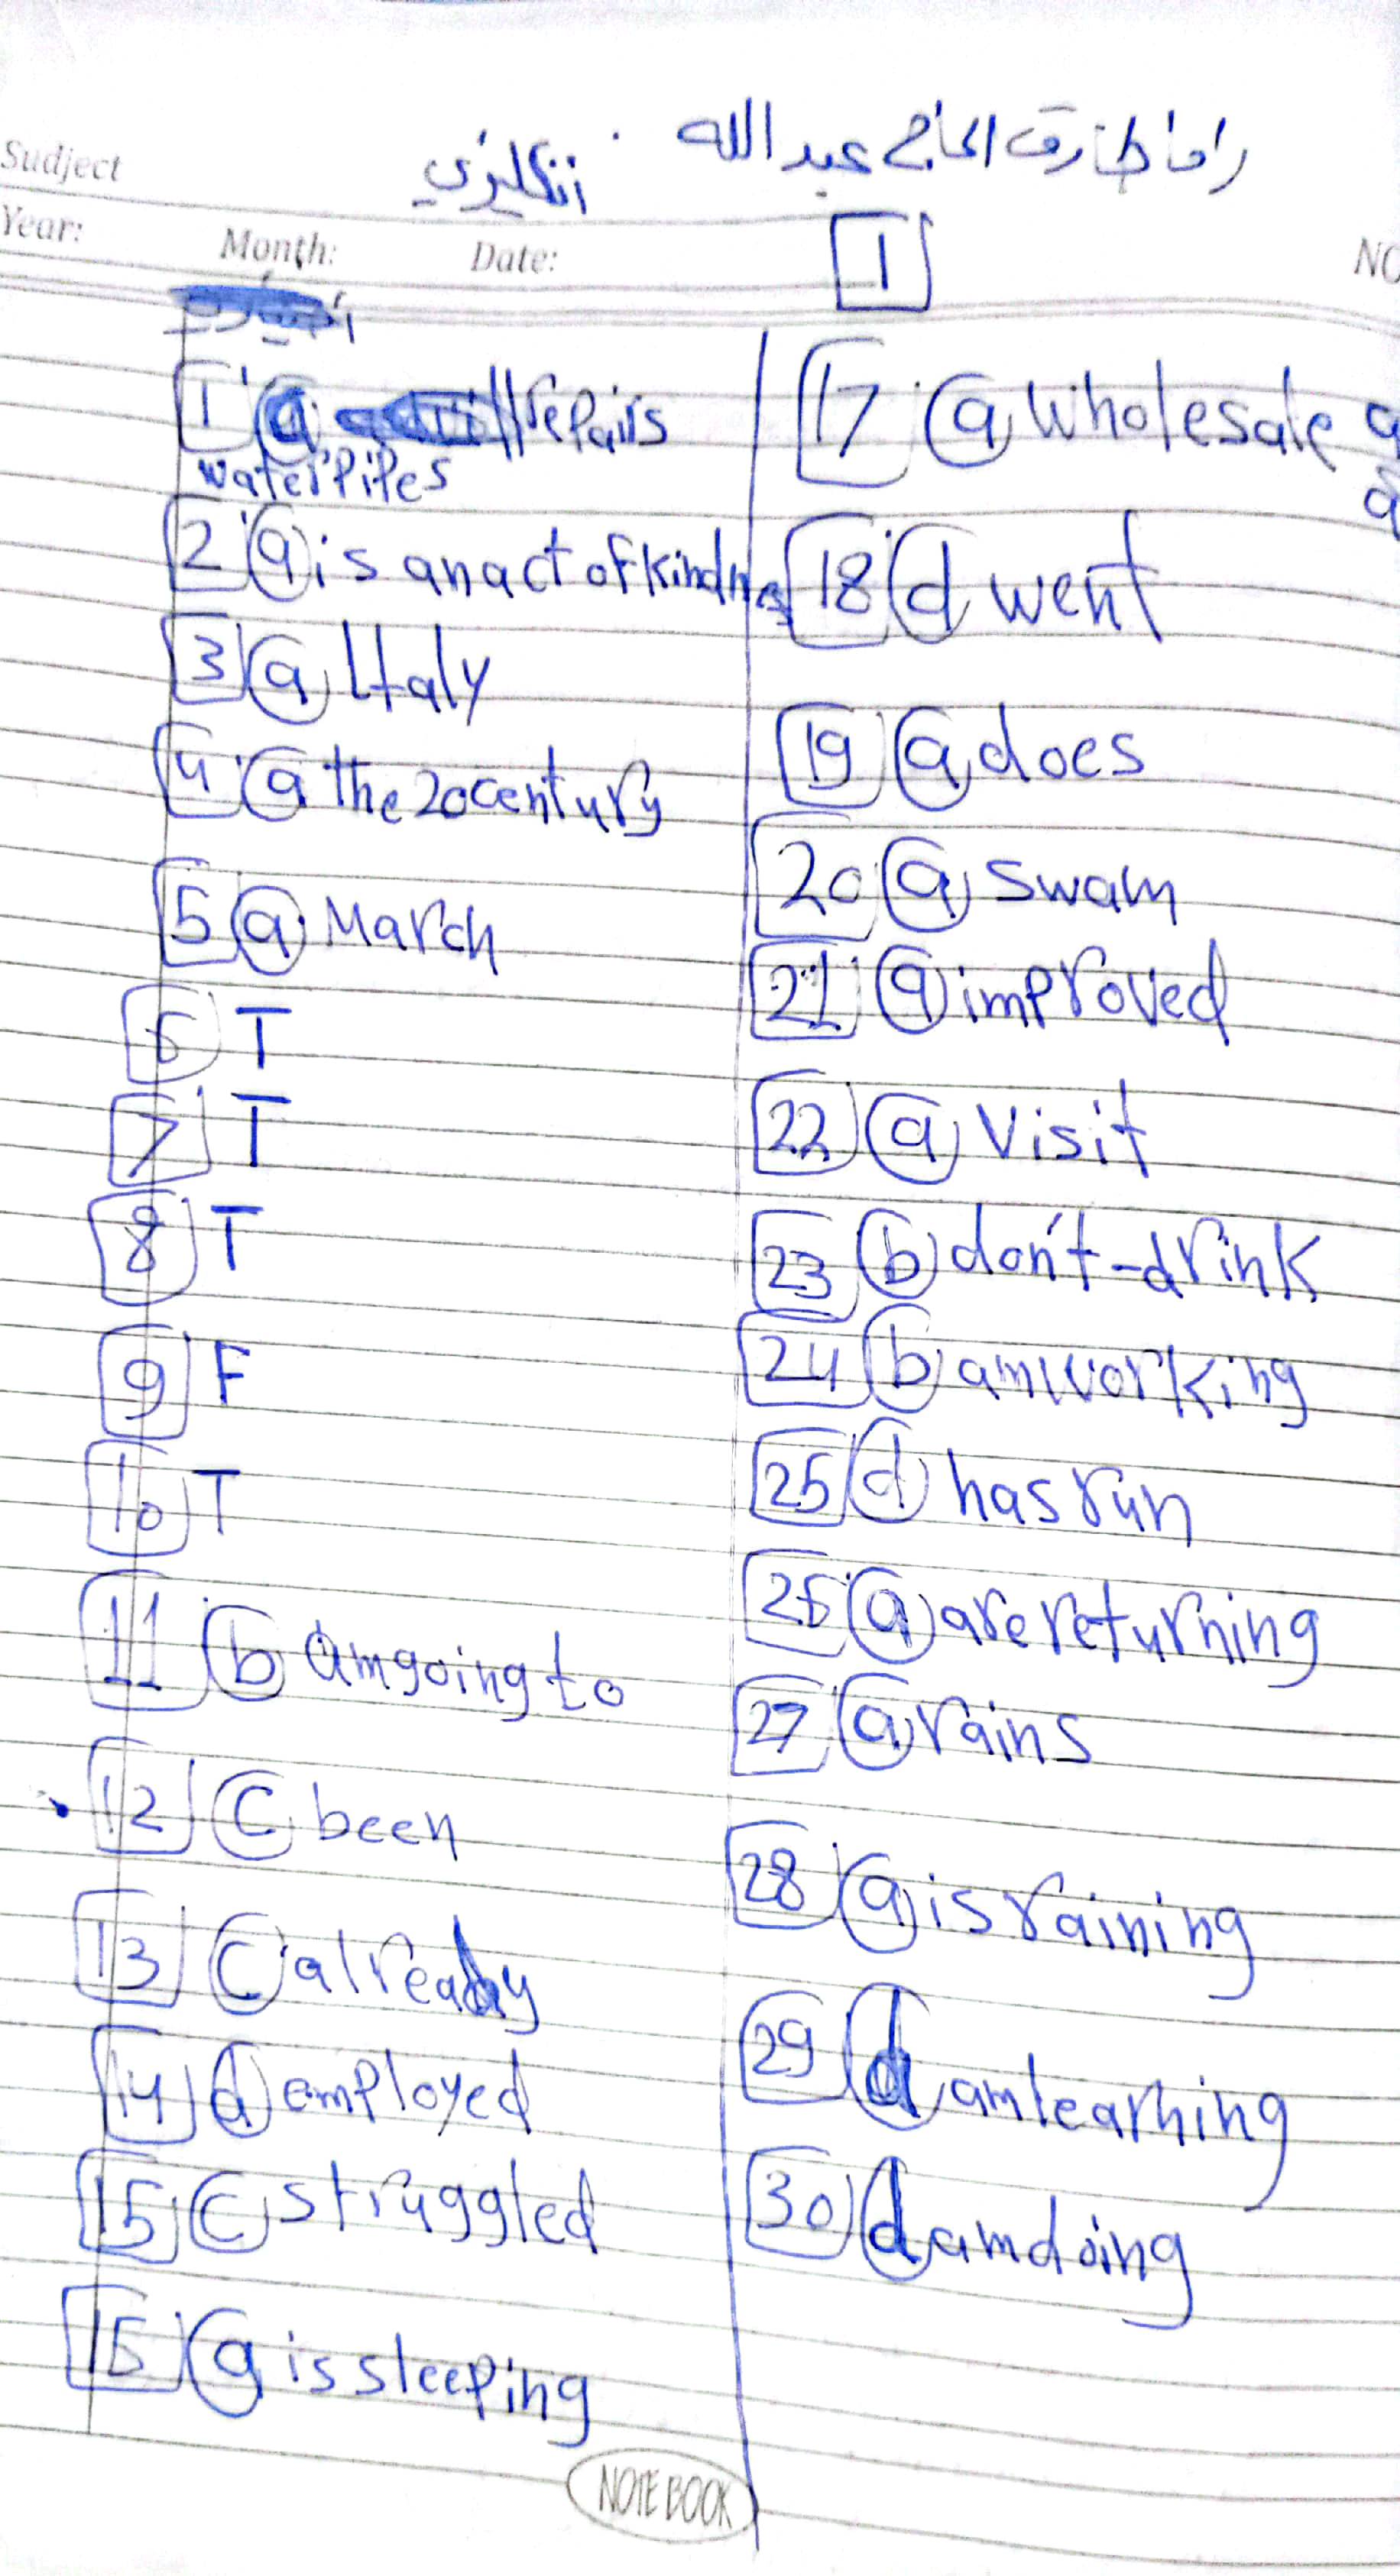 راما طارق الحاج عبد الله
انكليزي
Sudject
Year:
Month:
Date:
NO
1
1 a repairs
water Pipes
2 a is an act of kindnes
3 a Italy
4 a the 20 century
5 a March
6 T
7 T
8 T
9 F
10 T
11 b am going to
12 C been
13 C already
14 d employed
15 C struggled
16 a is sleeping
17 a wholesale
18 d went
19 a does
20 a swam
21 a improved
22 a Visit
23 b don't-drink
24 b am working
25 d has run
26 a are returning
27 a rains
28 a is raining
29 d am learning
30 d am doing
NOTE BOOK